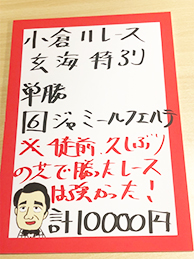 小倉11レース
玄海特別
単勝
6ジャミールフエルテ
※徒前、久しぶり
の芝で勝ったレース
は強かった！
計10000円